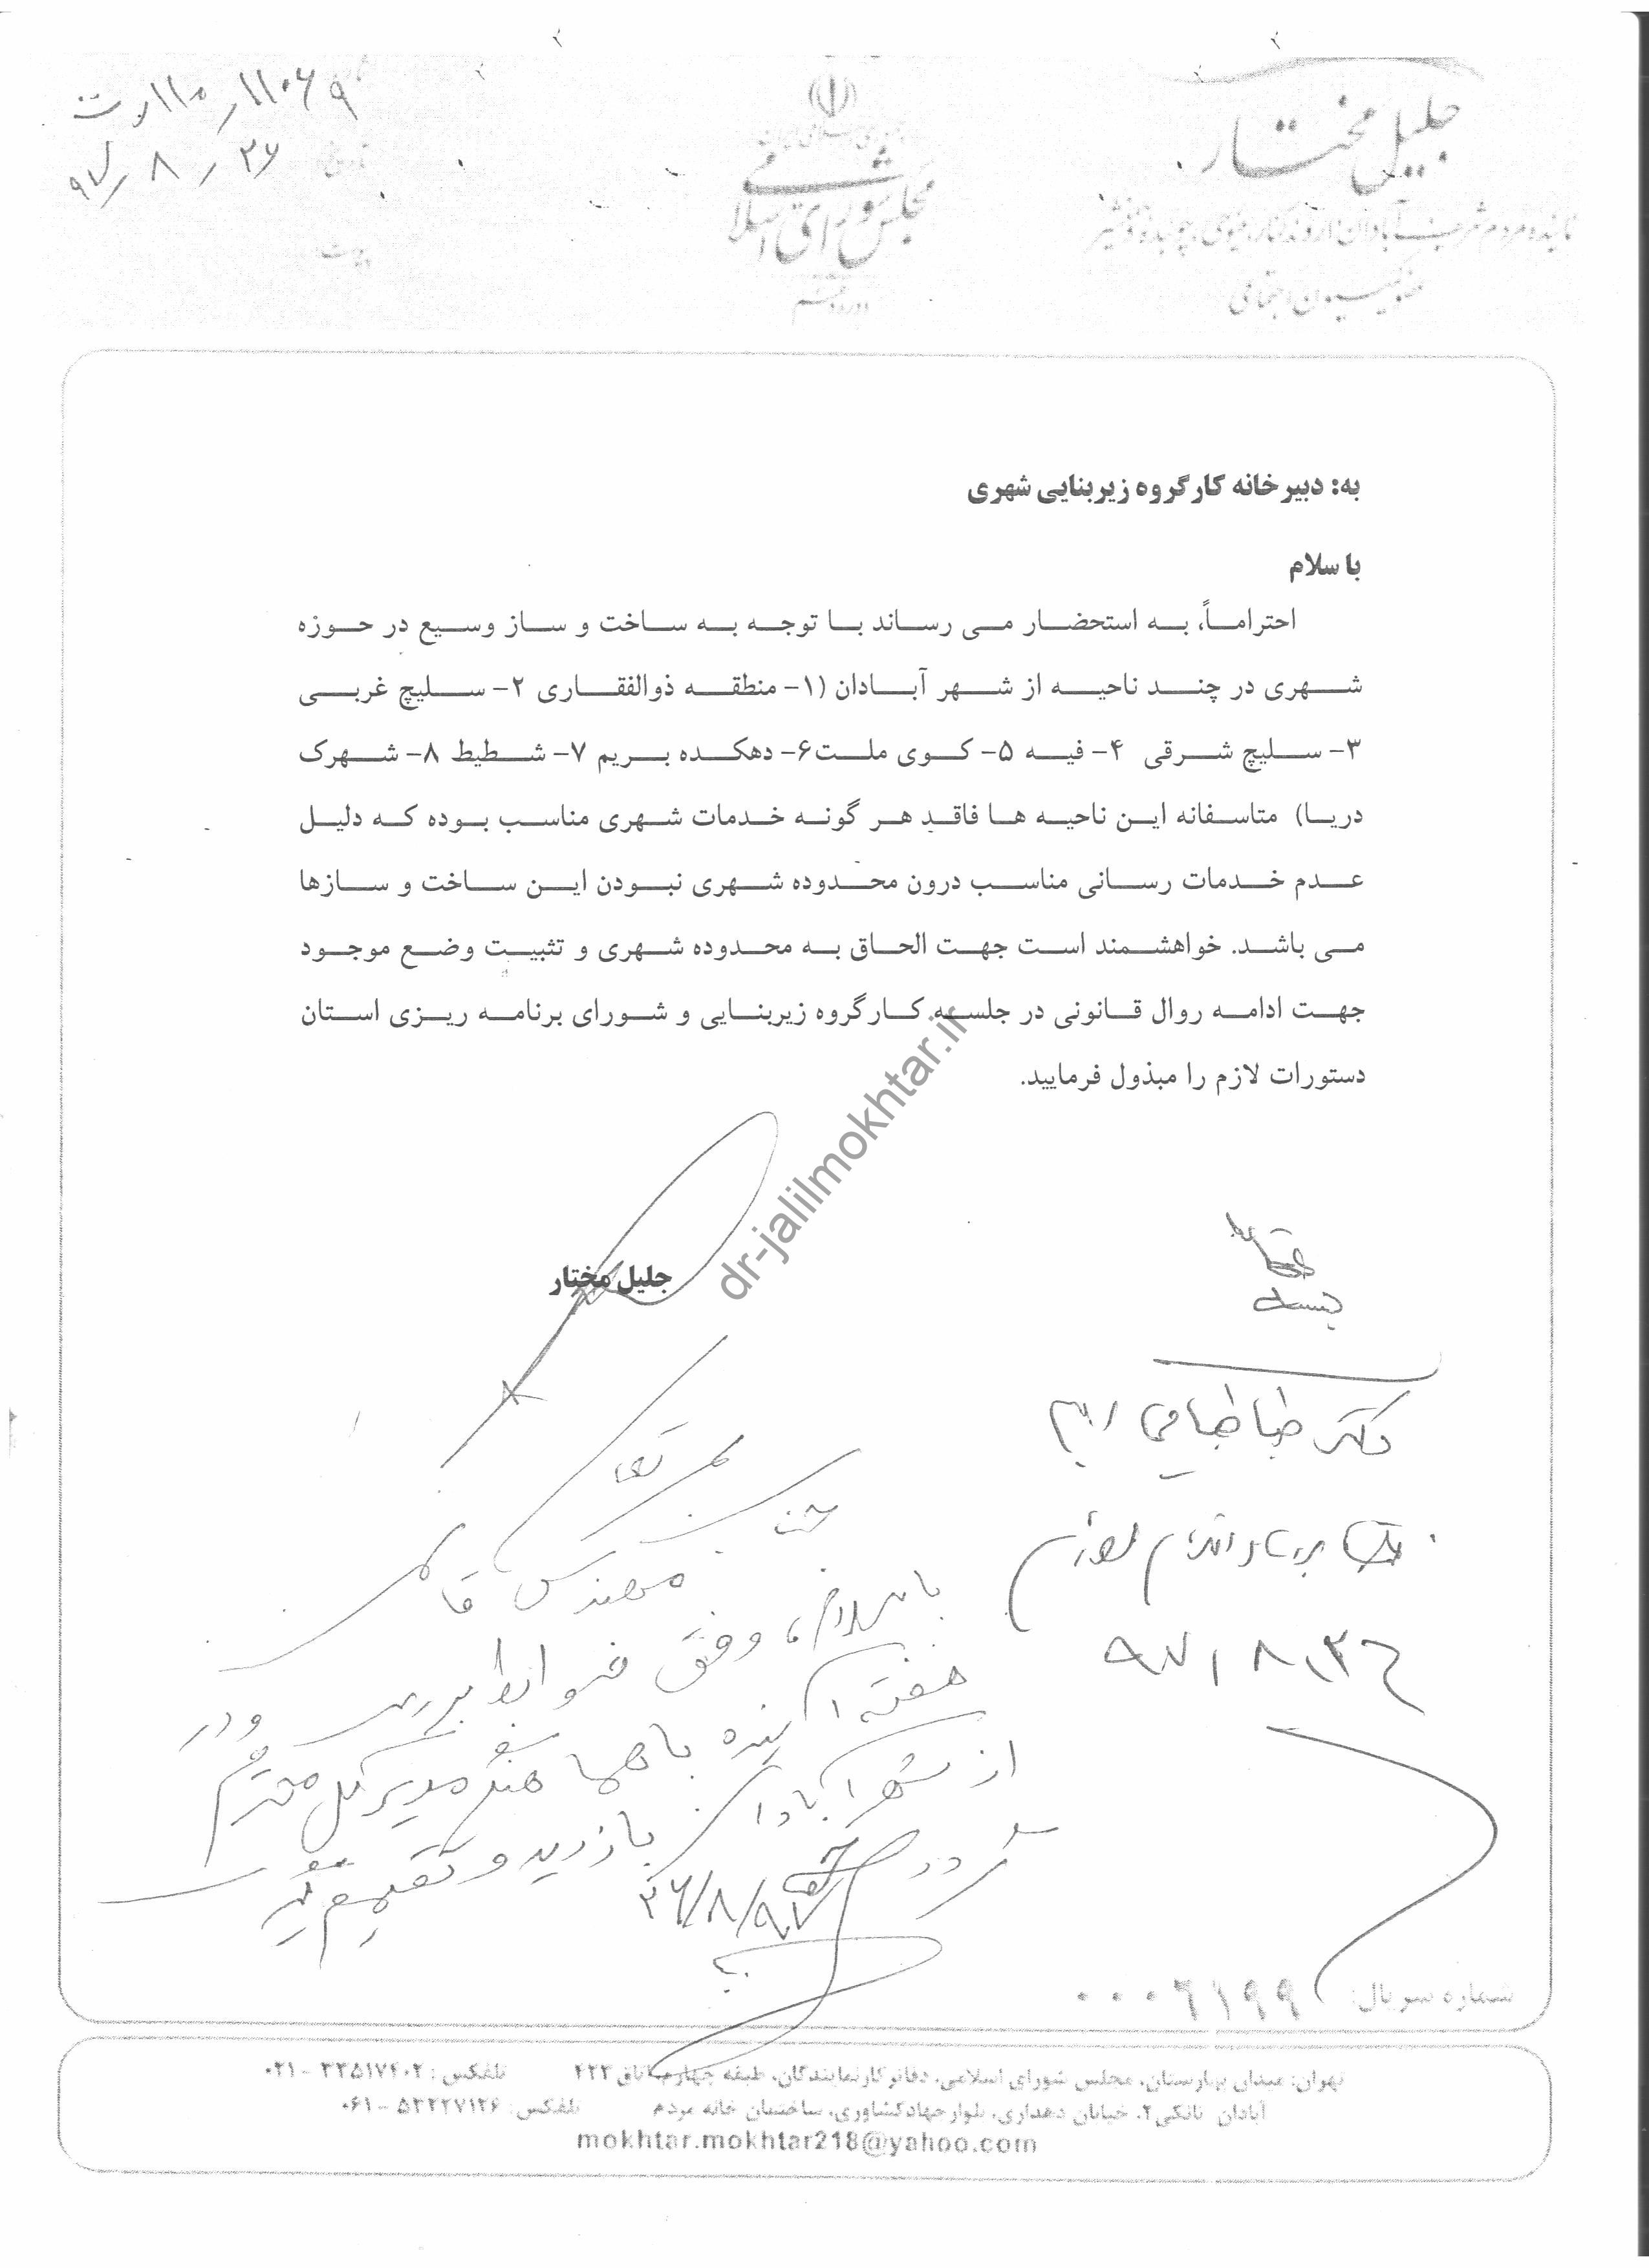 ۱۱۰۶۹ر۱۱۰رت
۹۷ر۸ر۲۶
جلیل مختار
مجلس شورای اسلامی
به: دبیرخانه کارگروه زیربنایی شهری
با سلام
احتراماً، به استحضار می رساند با توجه به ساخت و ساز وسیع در حوزه
شهری در چند ناحیه از شهر آبادان (۱- منطقه ذوالفقاری ۲- سلیچ غربی
۳- سلیچ شرقی ۴- فیه ۵- کوی ملت ۶- دهکده بریم ۷- شطیط ۸- شهرک
دریا) متاسفانه این ناحیه ها فاقد هر گونه خدمات شهری مناسب بوده که دلیل
عدم خدمات رسانی مناسب درون محدوده شهری نبودن این ساخت و سازها
می باشد. خواهشمند است جهت الحاق به محدوده شهری و تثبیت وضع موجود
جهت ادامه روال قانونی در جلسه کارگروه زیربنایی و شورای برنامه ریزی استان
دستورات لازم را مبذول فرمایید.
dr-jalilmokhtar.ir
جلیل مختار
دکتر طباطبایی
۹۷/۸/۲۶
مهندس
با سلام، وفق ضوابط بررسی و در
هفته آینده با هماهنگی مدیر کل محترم
از شهر آبادان بازدید و
۲۶/۸/۹۷
شماره سریال: ۰۰۰۶۱۹۹
تهران: میدان بهارستان، مجلس شورای اسلامی، دفاتر کار نمایندگان، طبقه چهارم، اتاق ۴۲۳ تلفکس: ۳۳۵۱۷۴۰۲ - ۰۲۱
آبادان تانکی۲، خیابان دهداری، بلوار جهاد کشاورزی، ساختمان خانه مردم تلفکس: ۵۳۲۲۷۱۲۶ - ۰۶۱
mokhtar.mokhtar218@yahoo.com